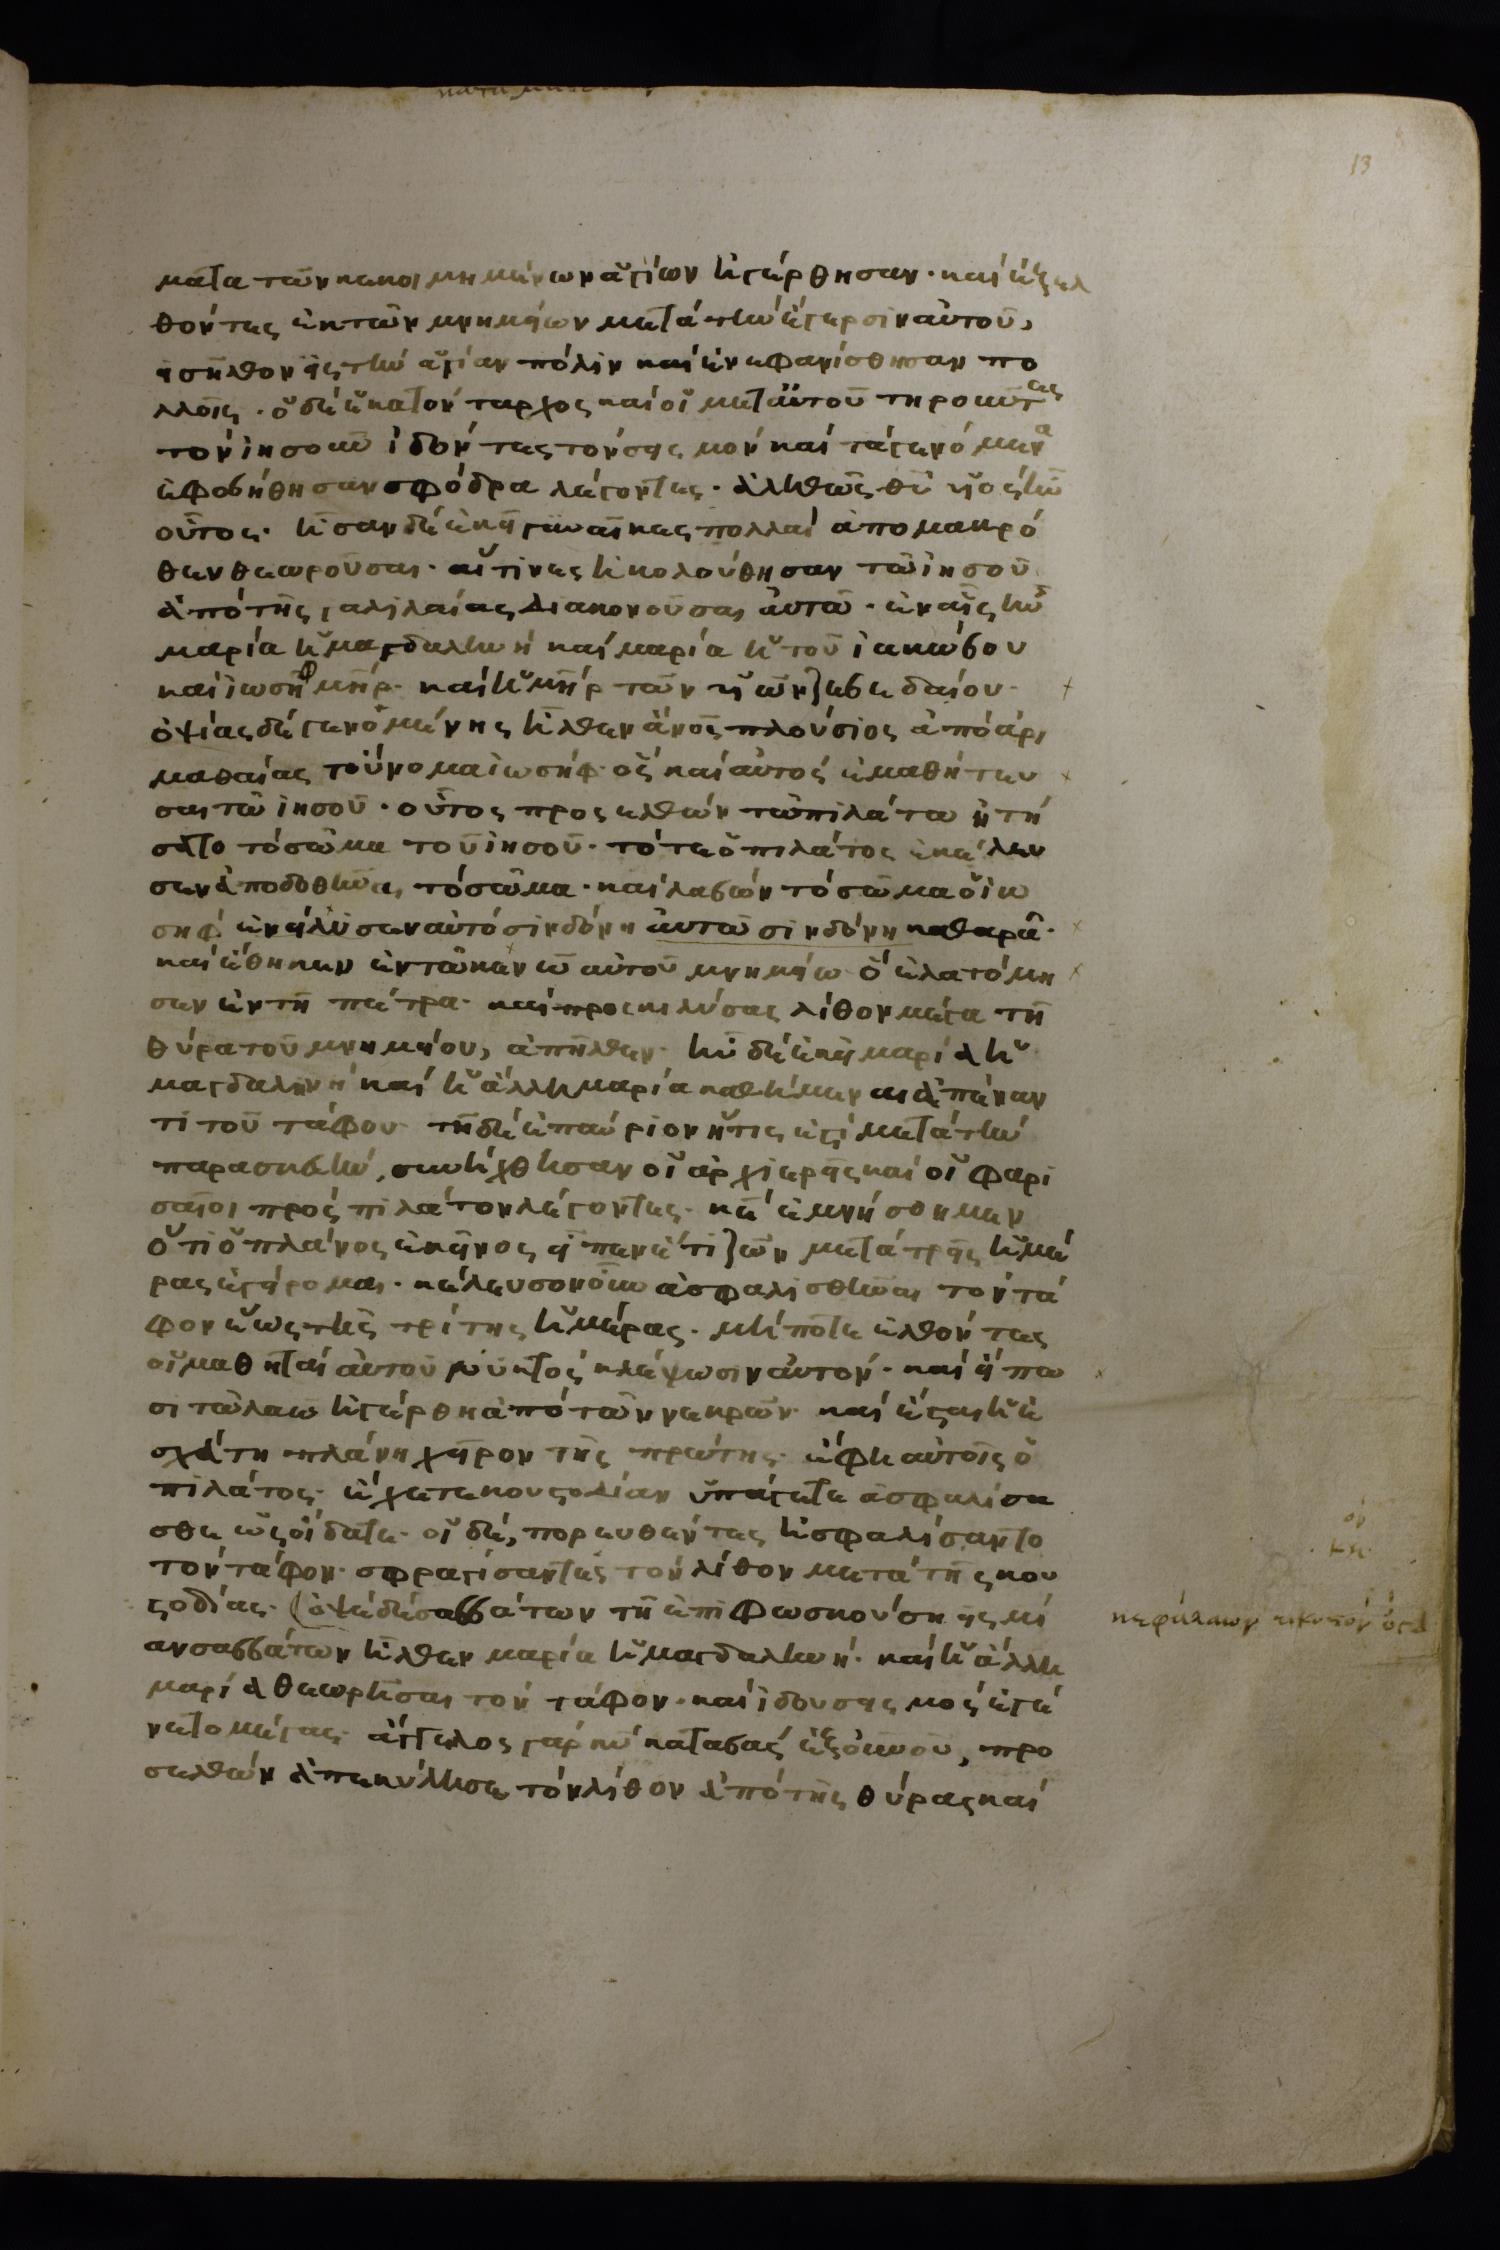 13
ματα τῶν κεκοιμημένων ἁγίων ἠγέρθησαν· καὶ ἐξελ
θόντες ἐκ τῶν μνημείων μετὰ τὴν ἔγερσιν αὐτοῦ,
εἰσῆλθον εἰς τὴν ἁγίαν πόλιν καὶ ἐνεφανίσθησαν πο
λλοῖς· ὁ δὲ ἑκατόνταρχος καὶ οἱ μετ αὐτοῦ τηροῦντες
τὸν ἰησοῦν ἰδόντες τὸν σεισμὸν καὶ τὰ γενόμενα
ἐφοβήθησαν σφόδρα λέγοντες· ἀληθῶς θῦ υἱὸς ἦν
οὗτος· ἦσαν δὲ ἐκεῖ γυναῖκες πολλαὶ ἀπὸ μακρό
θεν θεωροῦσαι· αἵτινες ἠκολούθησαν τῶ ἰησοῦ
ἀπὸ τῆς γαλιλαίας διακονοῦσαι αὐτῶ· ἐν αἷς ἦν
μαρία ἡ μαγδαληνὴ καὶ μαρία ἡ τοῦ ἰακώβου
καὶ ἰωσὴφ μήρ· καὶ ἡ μήρ τῶν υἱῶν ζεβεδαίου·
ὀψίας δὲ γενομένης ἦλθεν ἄνος πλούσιος ἀπὸ ἀρι
μαθαίας τοὔνομα ἰωσήφ· ὃς καὶ αὐτὸς ἐμαθήτευ
σε τῶ ἰησοῦ· οὗτος προσελθὼν τῶ πιλάτω ἠτή
σατο τὸ σῶμα τοῦ ἰησοῦ· τότε ὁ πιλάτος ἐκέλευ
σεν ἀποδοθῆναι τὸ σῶμα· καὶ λαβὼν τὸ σῶμα ὁ ἰω
σὴφ ἐνείλυσεν αὐτὸ σινδόνη αὐτῶ σινδόνη καθαρᾶ·
καὶ ἔθηκεν ἐν τῶ κενῶ αὐτοῦ μνημείω ὃ ἐλατόμη
σεν ἐν τῆ πέτρα· καὶ προσκιλύσας λίθον μέγα τῆ
θύρα τοῦ μνημείου, ἀπῆλθεν· ἦν δὲ ἐκεῖ μαρία ἡ
μαγδαληνὴ καὶ ἡ ἄλλη μαρία καθήμεναι ἀπέναν
τι τοῦ τάφου· τῆ δὲ ἐπαύριον ἥτις ἐστὶ μετὰ τὴν
παρασκευὴν, συνήχθησαν οἱ ἀρχιερεῖς καὶ οἱ φαρι
σαῖοι πρὸς πιλάτον λέγοντες· κέ ἐμνήσθημεν
ὅτι ὁ πλάνος ἐκεῖνος εἶπεν ἔτι ζῶν μετὰ τρεῖς ἡμέ
ρας ἐγείρομαι· κέλευσον οὖν ἀσφαλισθῆναι τὸν τά
φον ἕως τῆς τρίτης ἡμέρας· μήποτε ἐλθόντες
οἱ μαθηταὶ αὐτοῦ νυκτὸς κλέψωσιν αὐτόν· καὶ εἴπω
σι τῶ λαῶ ἠγέρθη ἀπὸ τῶν νεκρῶν· καὶ ἔσται ἡ ἐ
σχάτη πλάνη χεῖρον τῆς πρώτης· ἔφη αὐτοῖς ὁ
πιλάτος· ἔχετε κουστοδίαν ὑπάγετε ἀσφαλίσα
σθε ὡς οἴδατε· οἱ δὲ, πορευθέντες ἠσφαλίσαντο
τὸν τάφον· σφραγίσαντες τὸν λίθον μετὰ τῆς κου
στοδίας· (ὀψὲ δὲ σαββάτων τῆ ἐπιφωσκούση εἰς μί
αν σαββάτων ἦλθεν μαρία ἡ μαγδαληνὴ· καὶ ἡ ἄλλη
μαρία θεωρῆσαι τὸν τάφον· καὶ ἰδου σεισμὸς ἐγέ
νετο μέγας· ἄγγελος γὰρ κυ καταβὰς ἐξ οὐνοῦ, προ
σελθὼν ἀπεκύλισε τὸν λίθον ἀπὸ τῆς θύρας καὶ
ὀν
κη·
κεφάλαιον εἰκοστὸν ὀγδ